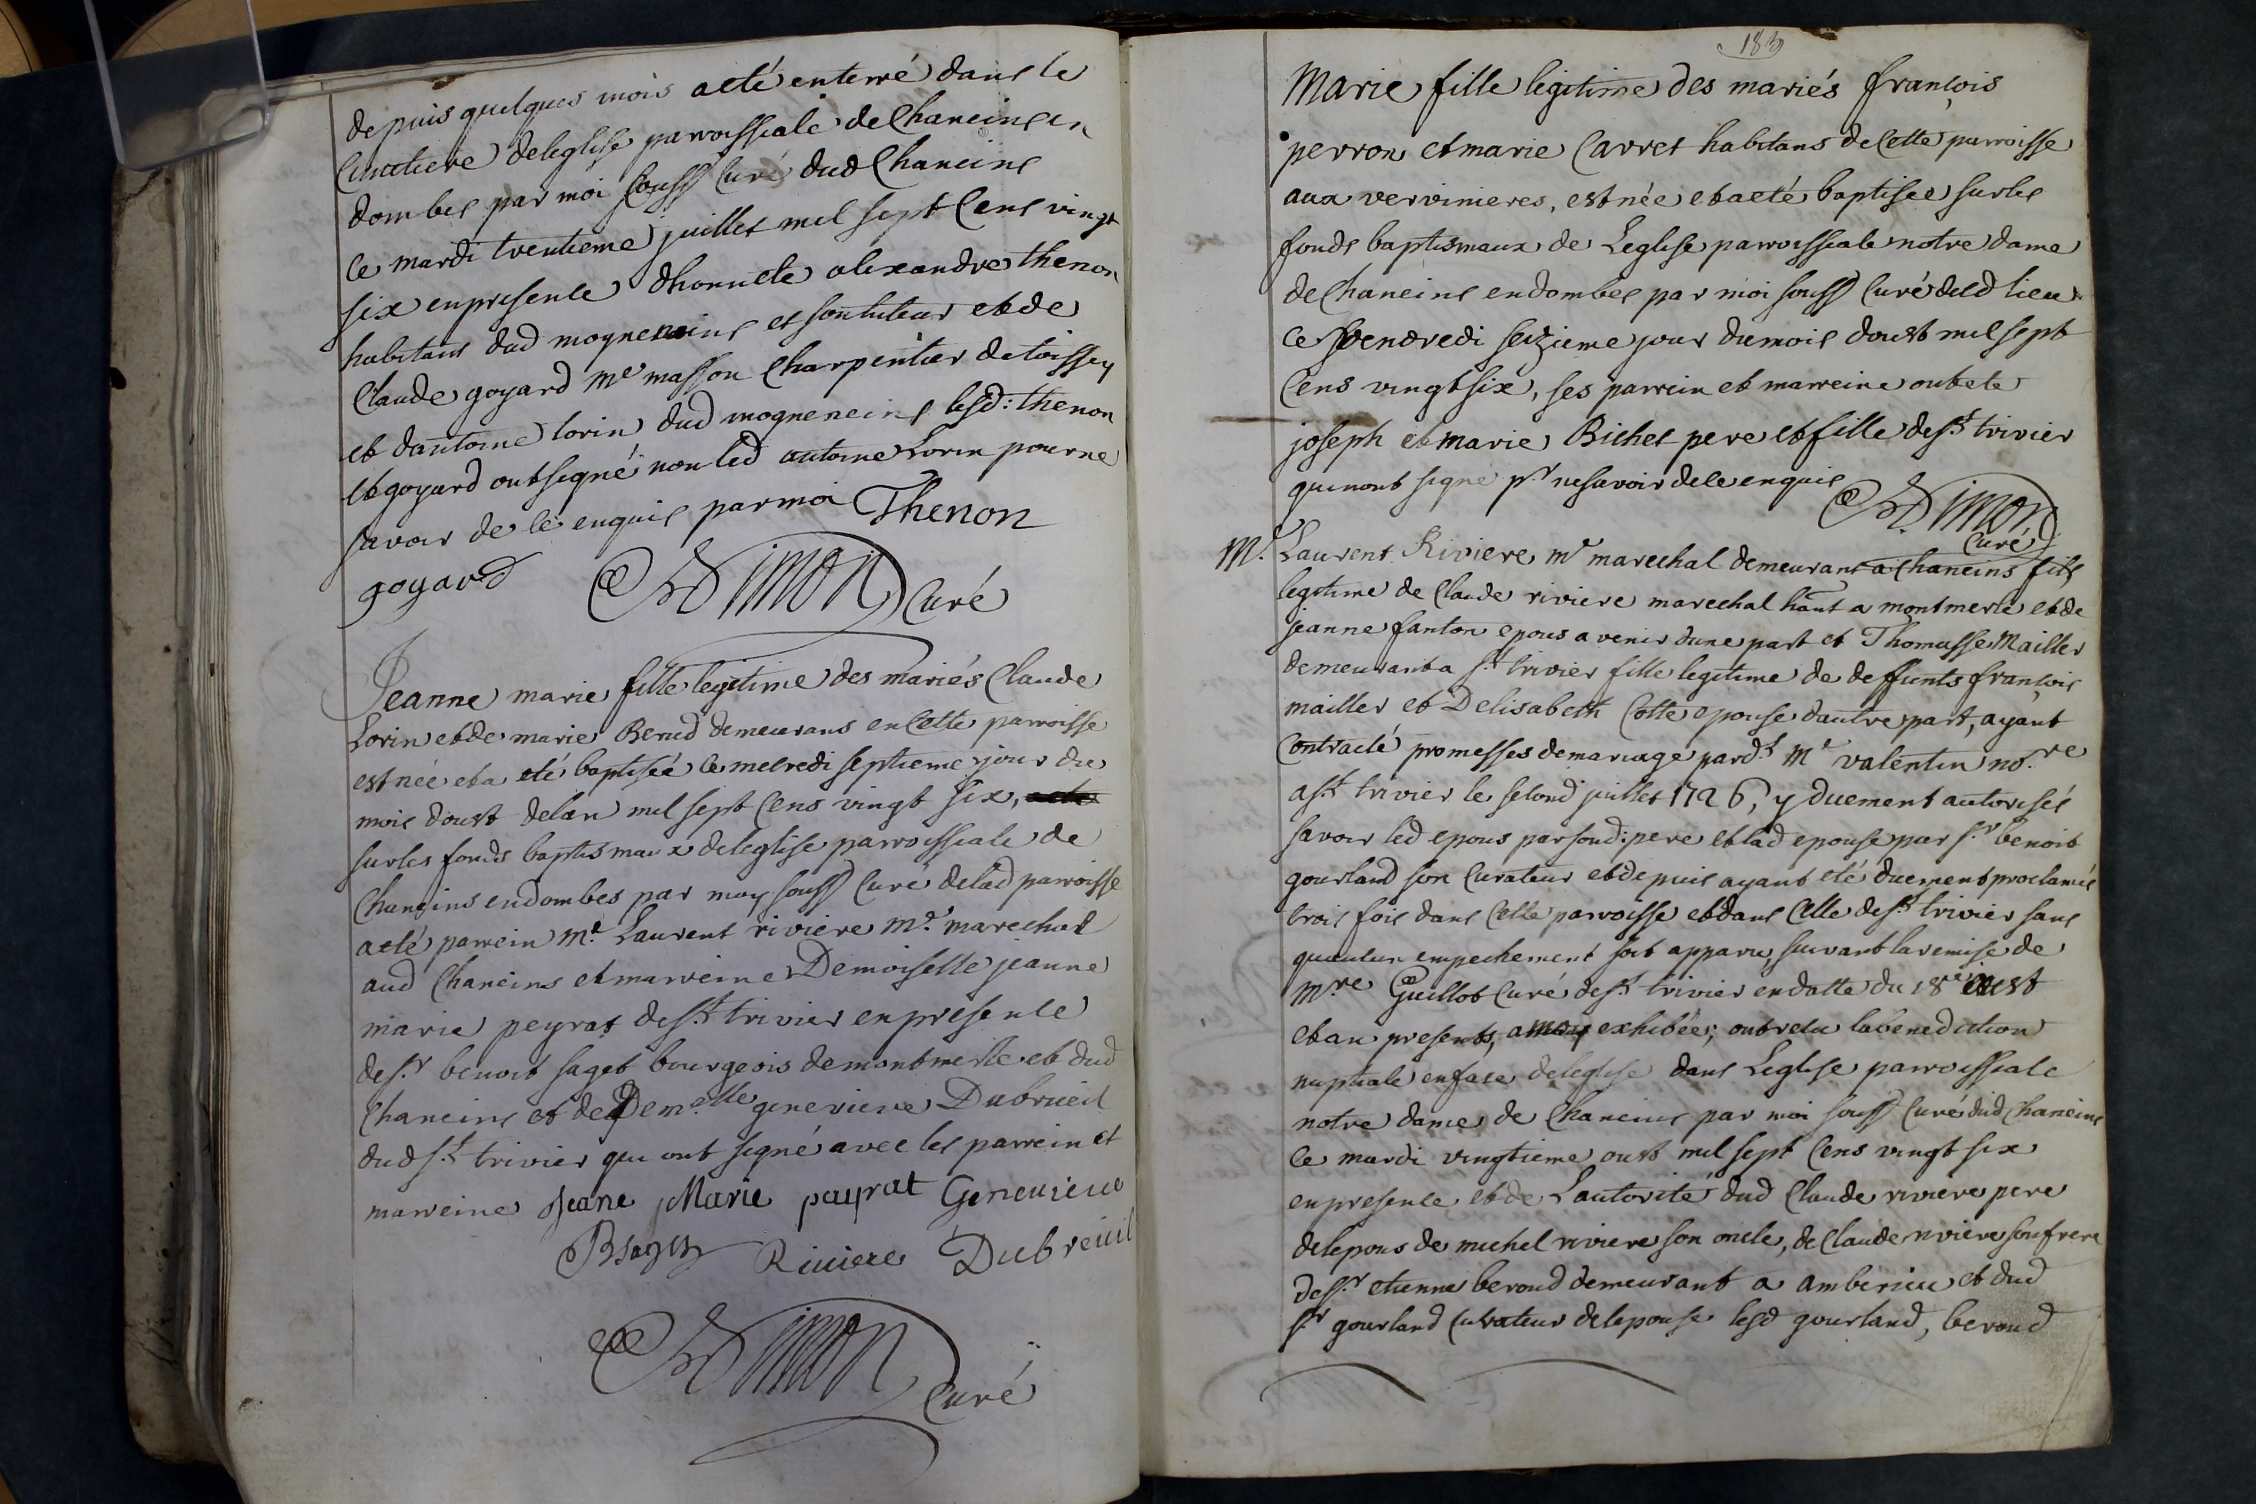 depuis quelques mois aeté enterré dans le
Cimetiere deleglise parroissiale de Chaneins en
dombes par moi souss Curé dud Chaneins
ce mardi trentieme juillet mil sept Cens vingt
six enpresence dhonnete alexandre thenon
habitant dud mogneneins et son tuteur et de
Claude goyard Me masson Charpentier de toissey
et dantoine lorin dud mogneneins lesd: thenon
et goyard ont signé non led antoine Lorin pour ne
savoir de ce enquis par moi Thenon
goyard Simon Curé
Jeanne marie fille legitime des mariés Claude
Lorin et de marie Berud demeurans en Cette parroisse
est née et a eté baptisée ce mecredi septieme jour du
mois doust delan mil sept Cens vingt six,
sur les fonds baptismaux deleglise parroissiale de
Chaneins endombes par moy souss Curé delad parroisse
aeté parrein Me. Laurent riviere Me. marechal
aud Chaneins et marreine Demoiselle jeanne
marie peyrat de st trivier enpresence
de sr benoit saget bourgeois de montmerle et dud
Chaneins et de Demelle genevieve Dubrueil
dud st trivier qui ont signé avec les parrein et
marreine Jeane Marie payrat Genevieve
BSaget Riviere Dubreuil
Simon
Curé
183
Marie fille legitime des mariés françois
perron et marie Carret habitans de Cette parroisse
aux vervinieres, est née et aeté baptisée sur les
fonds baptismaux de Leglise parroissiale notre dame
de Chaneins endombes par moi souss Curé dud lieu
ce vendredi seizieme jour du mois doust mil sept
Cens vingt six, ses parrein et marreine ont ete
joseph et marie Bichet pere et fille de st trivier
qui nont signé pr ne savoir de ce enquis
Simon
Curé
M. Laurent Riviere me marechal demeurant a Chaneins fils
legitime de Claude riviere marechal hant a montmerle et de
jeanne fanton epous a venir dune part et Thomasse Mailler
demeurant a st trivier fille legitime de deffunts françois
mailler et Delisabeth Cotte epouse dautre part, ayant
Contracté promesses demariage pardt Me valentin nore
a st trivier le second juillet 1726, y duement autorisés
savoir led epous par sond: pere et lad epouse par sr benoit
gourland son Curateur et depuis ayant eté duement proclamés
trois fois dans Cette parroisse et dans Celle de st trivier sans
quaucun empechement soit apparu, suivant la remise de
Mre Guillot Curé de st trivier en datte du 18e oust
et an presents, a moy exhibée; ont reçu la benediction
nuptiale en face deleglise dans Leglise parroissiale
notre dame de Chaneins par moi souss Curé dud Chaneins
ce mardi vingtieme oust mil sept Cens vingt six
enpresence et de Lautorité dud Claude riviere pere
delepous de michel riviere son oncle, de Claude riviere son frere
de sr etienne beroud demeurant a amberieu et dud
sr gourland Curateur delepouse lesd gourland, beroud